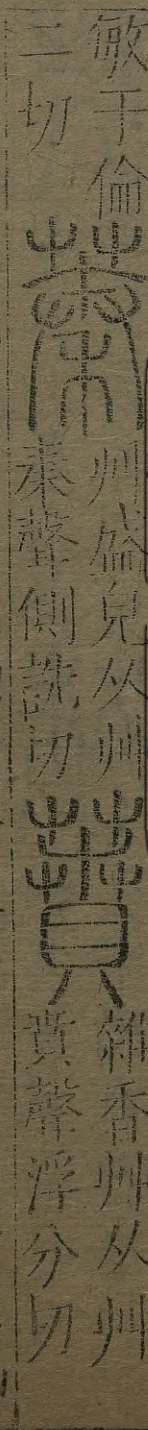 敏于倫
二切
蓁
艸盛皃从艸
秦聲側詵切
蕡
雜香艸从艸
賁聲浮分切